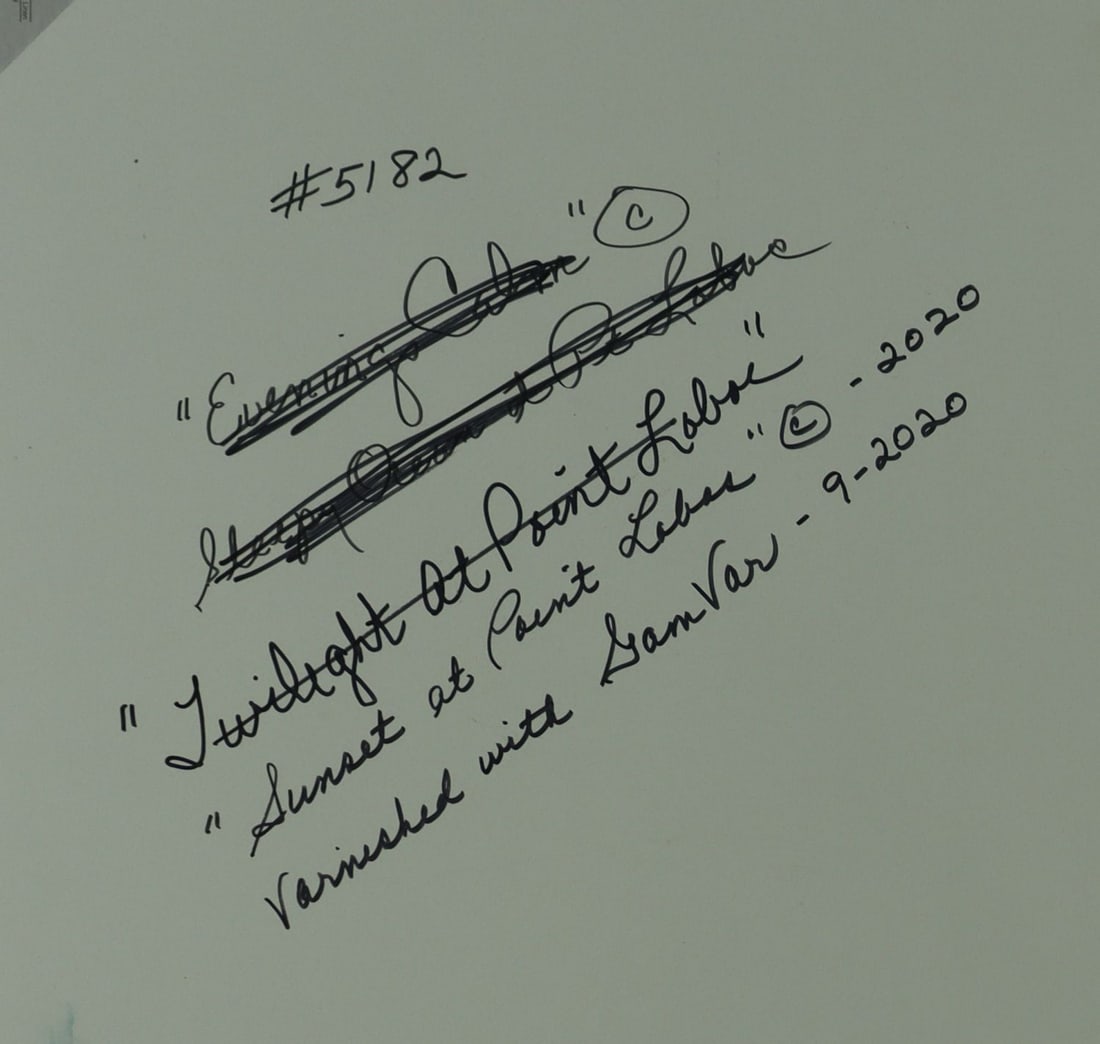 #5182
"Evening Calm" ©
Sleepy Ocean at Pt. Lobos
"Twilight At Point Lobos"
"Sunset at Point Lobos" © - 2020
Varnished with GamVar - 9-2020